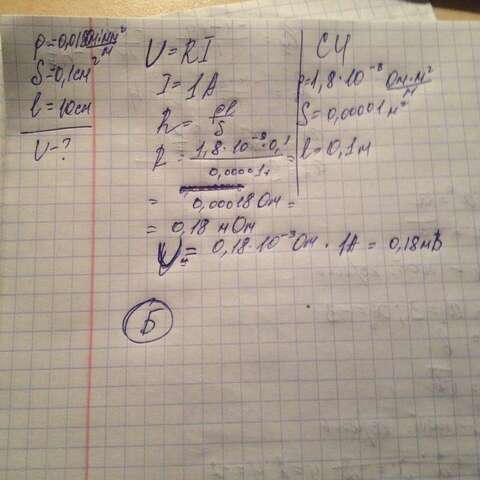 ρ=0,018 Ом·мм²/м
S=0,1см²
l=10см
U-?
U=RI
I=1A
R= ρl/S
R= 1,8·10⁻⁸·0,1/0,00001 =
= 0,00018 Ом =
= 0,18 мОм
U= 0,18·10⁻³Ом · 1А = 0,18мВ
СИ
ρ=1,8·10⁻⁸ Ом·м²/м
S=0,00001м²
l=0,1м
Б